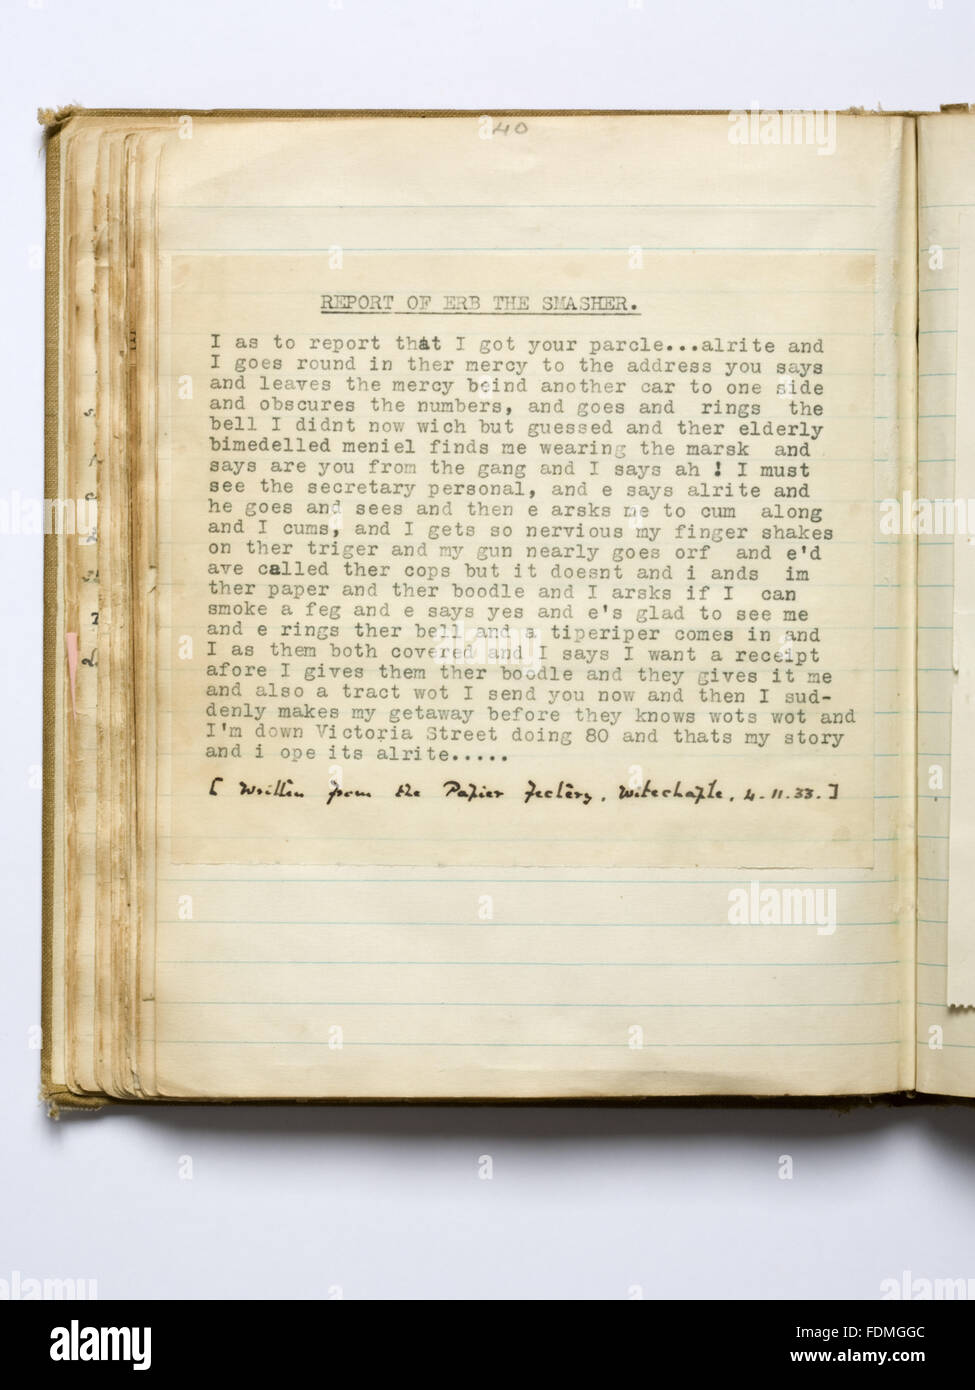 40
REPORT OF ERB THE SMASHER.
I as to report that I got your parcle...alrite and
I goes round in ther mercy to the address you says
and leaves the mercy beind another car to one side
and obscures the numbers, and goes and rings the
bell I didnt now wich but guessed and ther elderly
bimedelled meniel finds me wearing the marsk and
says are you from the gang and I says ah ! I must
see the secretary personal, and e says alrite and
he goes and sees and then e arsks me to cum along
and I cums, and I gets so nervious my finger shakes
on ther triger and my gun nearly goes orf and e'd
ave called ther cops but it doesnt and i ands im
ther paper and ther boodle and I arsks if I can
smoke a feg and e says yes and e's glad to see me
and e rings ther bell and a tiperiper comes in and
I as them both covered and I says I want a receipt
afore I gives them ther boodle and they gives it me
and also a tract wot I send you now and then I sud-
denly makes my getaway before they knows wots wot and
I'm down Victoria Street doing 80 and thats my story
and i ope its alrite.....
[ Written from the Papier Fectery, Witechaple, 4-11-33.]
alamy
Image ID: FDMGGC
www.alamy.com